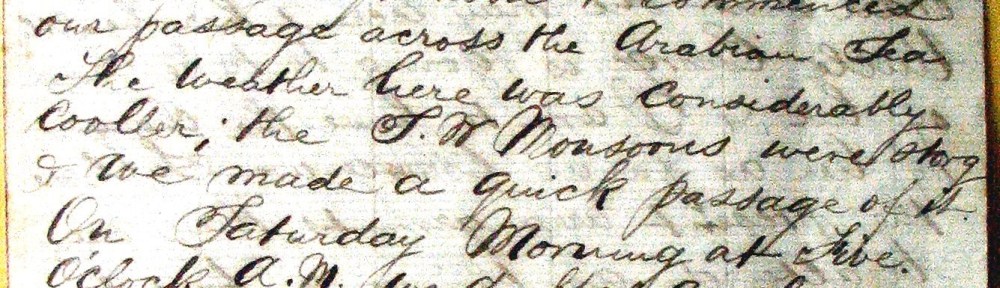 commenced
our passage across the Arabian Sea
The weather here was Considerably
Cooller, the S. W Monsoons were storg
& we made a quick passage of it.
On Saturday Morning at Five.
O'clock A.M. we